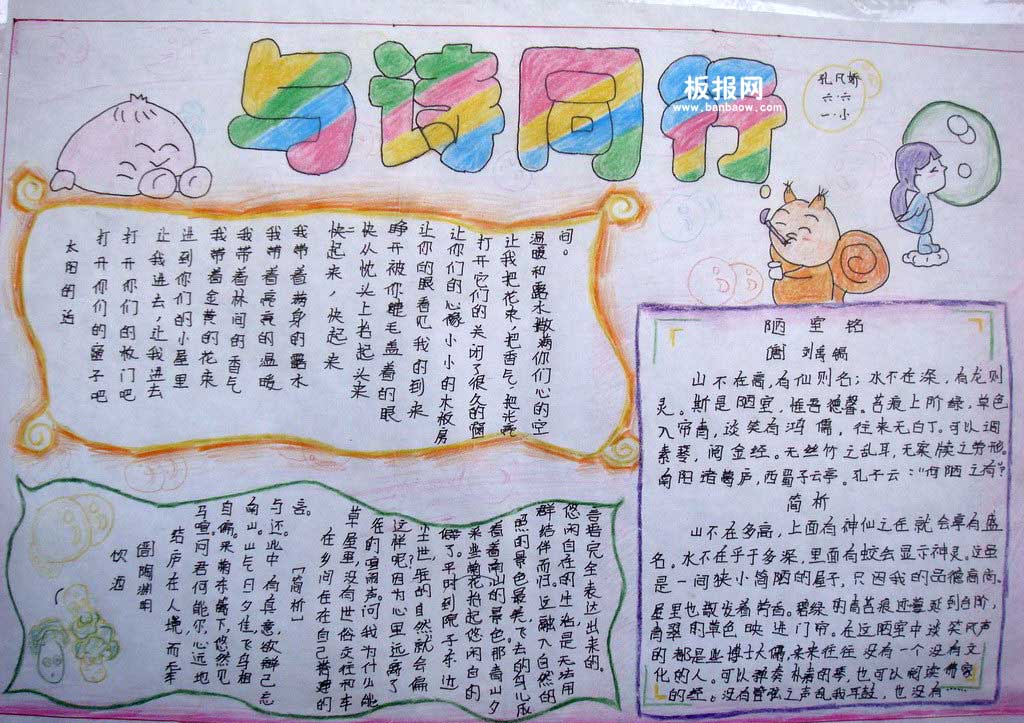 与诗同行
板报网
www.banbaow.com
孔凡娇
六·六
一·小
太阳的话
打开你们的窗子吧
打开你们的板门吧
让我进去,让我进去
进到你们的小屋里
我带着金黄的花束
我带着林间的香气
我带着亮亮的温暖
我带着满身的露水
快起来,快起来
快从枕头上抬起头来
睁开被你睫毛盖着的眼
让你的眼看见我的到来
让你们的心像小小的木板房
打开它们的关闭了很久的窗
让我把花束,把香气,把光亮
温暖和露水撒满你们心的空
间。
陋室铭
刘禹锡
山不在高,有仙则名;水不在深,有龙则
灵。斯是陋室,惟吾德馨。苔痕上阶绿,草色
入帘青,谈笑有鸿儒,往来无白丁。可以调
素琴,阅金经。无丝竹之乱耳,无案牍之劳形。
南阳诸葛庐,西蜀子云亭。孔子云:"何陋之有?
简析
山不在多高,上面有神仙之住就会享有盛
名。水不在乎于多深,里面有蛟会显示神灵。这虽
是一间狭小简陋的屋子,只因我的品德高尚。
屋里也散发着芳香。碧绿的青苔痕迹蔓延到台阶,
青翠的草色映进门帘。在这陋室中谈笑风声
的都是些博士大儒,来来往往没有一个没有文
化的人。可以弹奏朴素的琴,也可以阅读佛家
的经。没有管弦之声乱我耳鼓,也没有……
饮酒
陶渊明
结庐在人境,而无车
马喧。问君何能尔,心远地
自偏。采菊东篱下,悠然见
南山。山气日夕佳,飞鸟相
与还。此中有真意,欲辩已忘
言。
[简析]
在乡间住在自己搭建的
草屋里,没有世俗交往和车
往的喧闹声。问我为什么能
这样呢因为心里远离了
尘世,驻的自然就会偏
僻了。平时到院子东边
采些菊花抬起悠闲自的
看着南山的景色那南山夕
照的景色最美,飞去的鸟儿成
群结伴而归。这融入自然的
悠闲自在的生活是无法用
言语完全表达出来的。